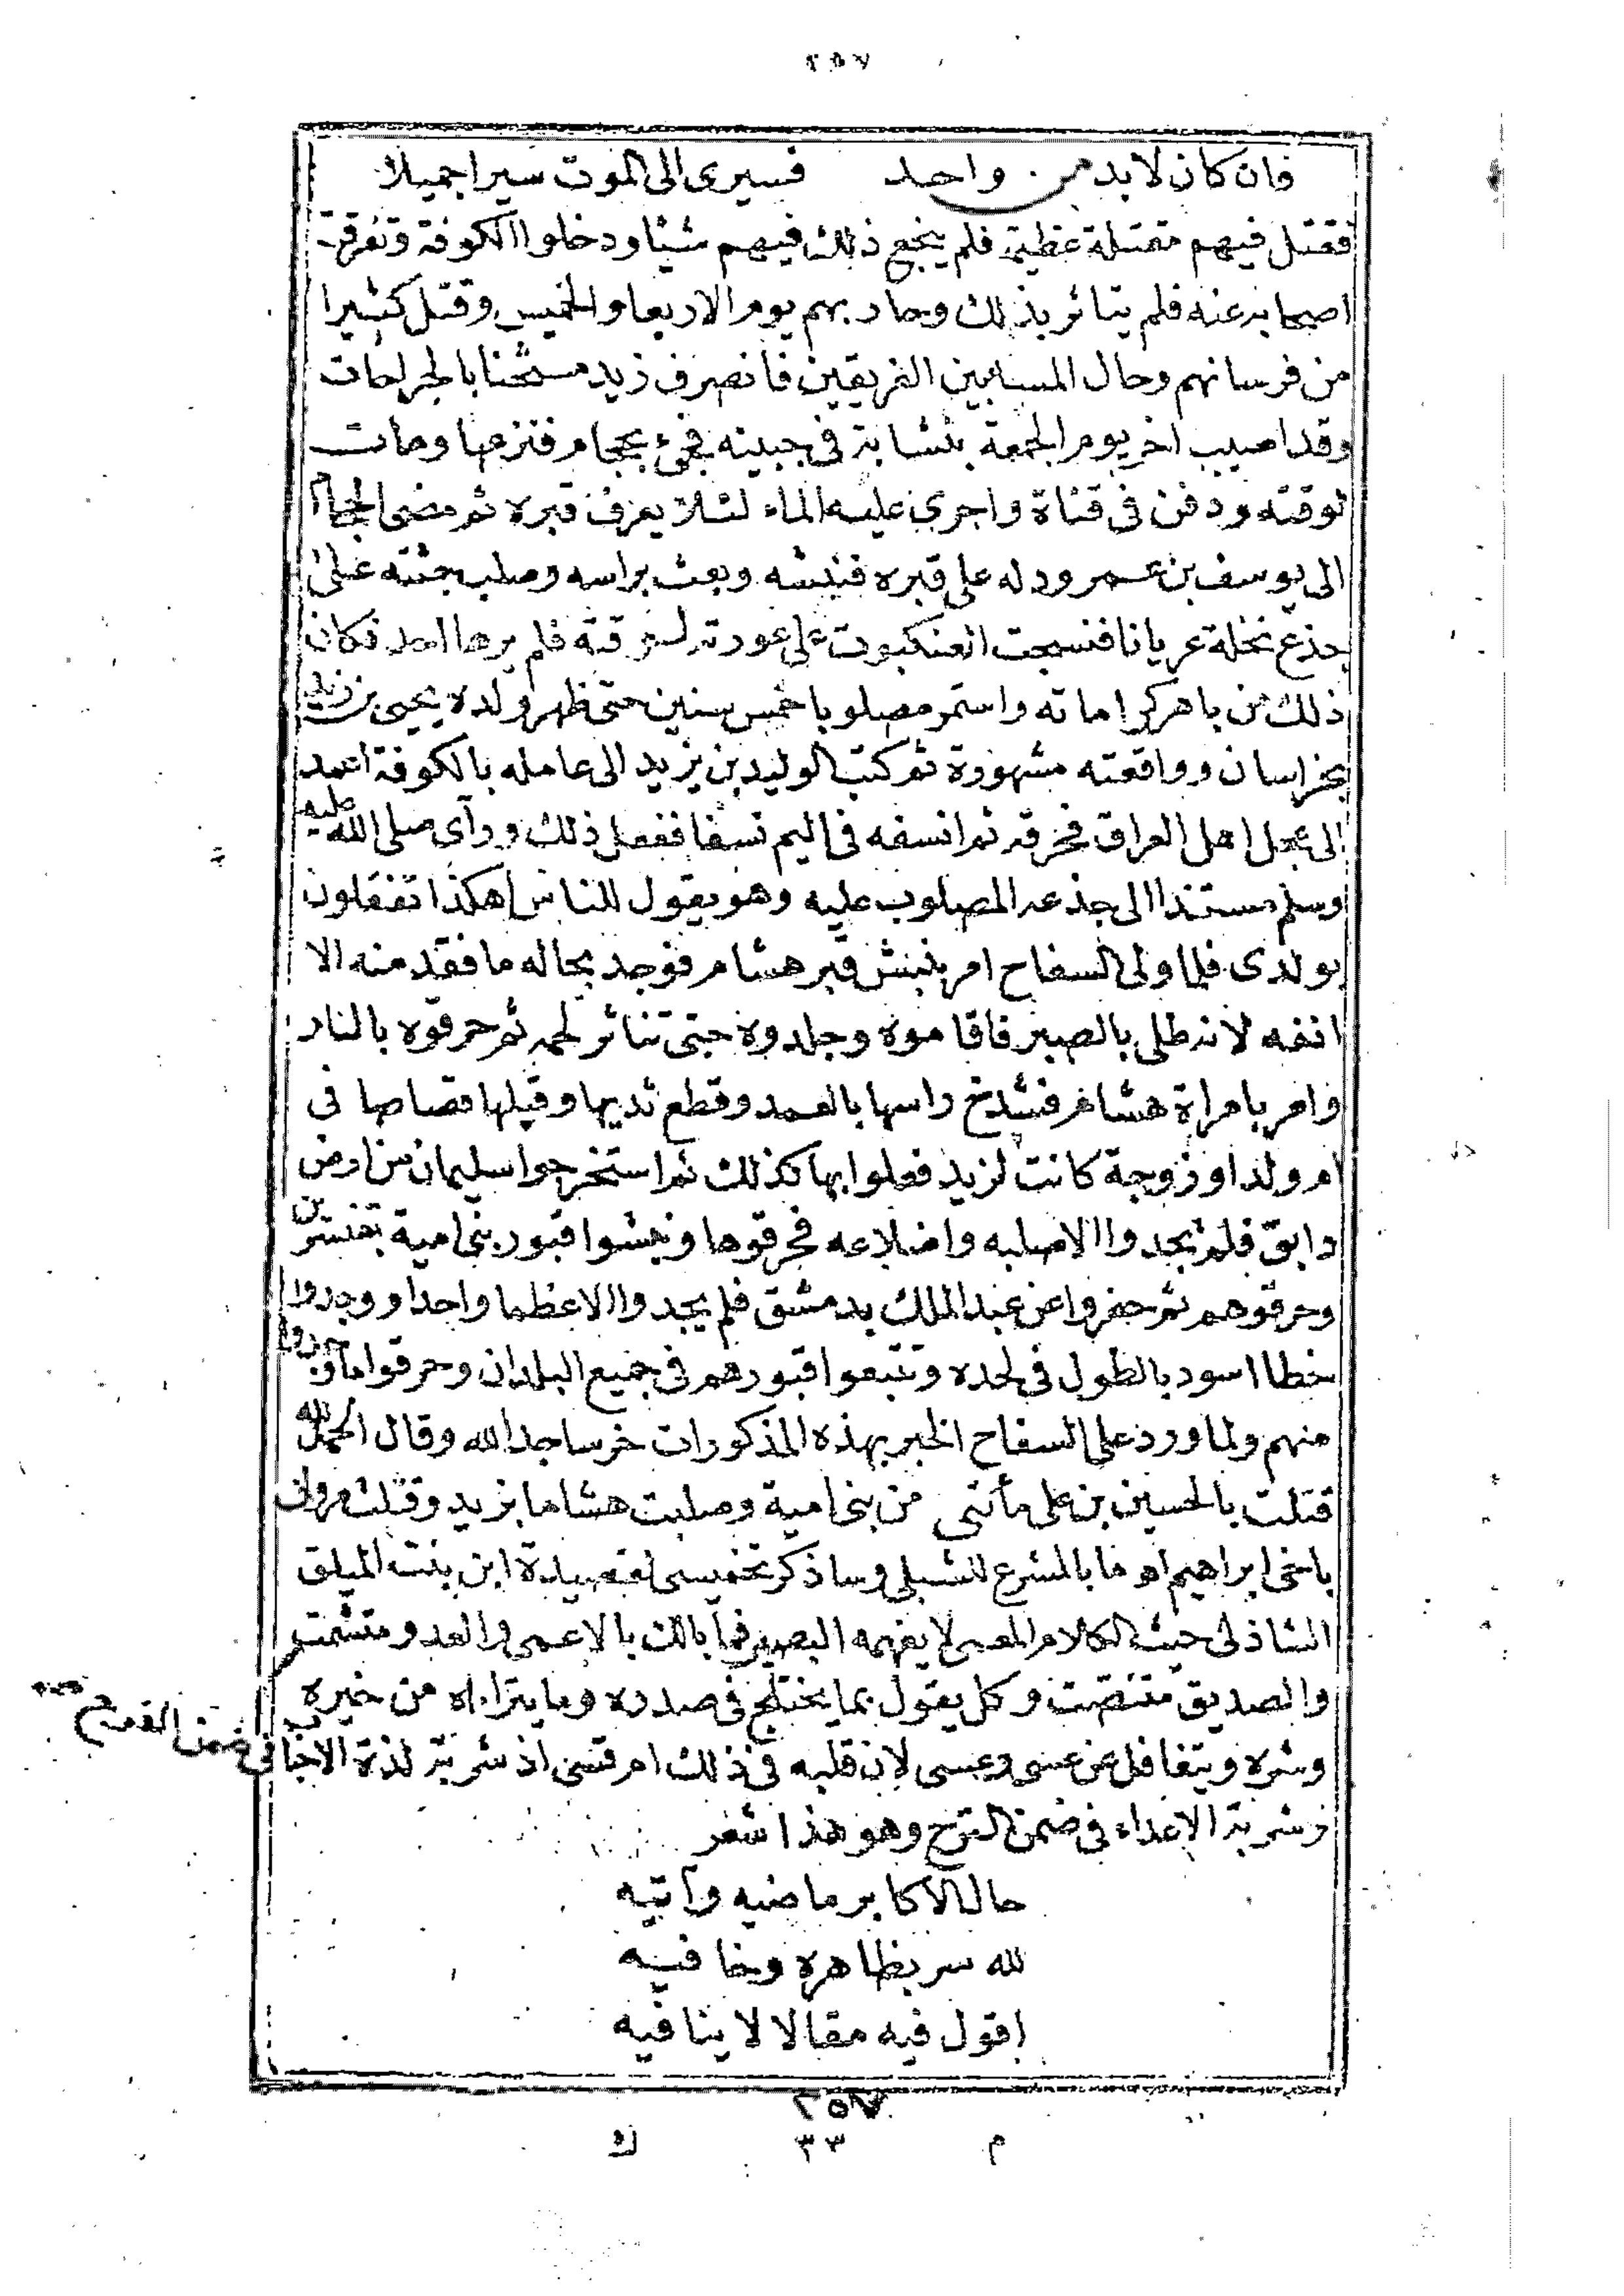 ٢٥٧
فان كان لابد من واحد فسيرى الى الموت سيرا جميلا
فقتل فيهم مقتلة عظيمة فلم ينجع ذلك فيهم شيئا ودخلوا الكوفة وتفرقت
اصحابه عنه فلم يتاثر بذلك وحاربهم يوم الاربعا والخميس وقتل كثيرا
من فرسانهم وحال المسا بين الفريقين فانصرف زيد مثخنا بالجراحات
وقد اصيب اخر يوم الجمعة بنشابة في جبينه فجىء بحجام فنزعها ومات
لوقته ودفن في قناة واجرى عليه الماء لئلا يعرف قبره ثم مضى الحجام
الى يوسف بن عمر ودله على قبره فنبشه وبعث براسه وصلب جثته على
جذع نخلة عريانا فنسجت العنكبوت على عورته لوقته فلم يرها احد فكان
ذلك من باهر كراماته واستمر مصلوبا خمس سنين حتى ظهر ولده يحيى بن زيد
بخراسان وواقعته مشهورة ثم كتب الوليد بن يزيد الى عامله بالكوفة اعمد
الى عجل اهل العراق فحرقه ثم انسفه في اليم نسفا ففعل ذلك ورآى صلى الله عليه
وسلم مستندا الى جذعه المصلوب عليه وهو يقول للناس اهكذا تفعلون
بولدى فلما ولى السفاح امر بنبش قبر هشام فوجد بحاله ما فقد منه الا
انفه لانه طلى بالصبر فاقاموه وجلدوه حتى تناثر لحمه ثم حرقوه بالنار
وامر بامراة هشام فشدخ راسها بالعمد وقطع ثديها وقتلها قصاصا في
ام ولد او زوجة كانت لزيد فعلوا بها كذلك ثم استخرجوا سليمان من ارض
دابق فلم يجدوا الا صلبه واضلاعه فحرقوها ونبشوا قبور بنى امية بقنسرين
وحرقوهم ثم حفروا عن عبد الملك بدمشق فلم يجدوا الا عظما واحدا ووجدوا
خطا اسود بالطول في لحده وتتبعوا قبورهم في جميع البلدان وحرقوا ما وجدوا
منهم ولما ورد على السفاح الخبر بهذه المذكورات خر ساجدا لله وقال الحمد لله
قتلت بالحسين بن على مأتى من بنى امية وصلبت هشاما بزيد وقتلت مروان
باخى ابراهيم اهـ ما بالمشرع للشبلى وساذكر تخميسى لقصيدة ابن بنت الميلق
الشاذلى حيث الكلام المعمى لا يفهمه البصير فما بالك بالاعمى والعدو متشمت
والصديق متنصت وكل يقول بما يختلج في صدره وما يتراياه من خيره
وشره ويتغافل عن عسى وعسى لان قلبه في ذلك ام قسى اذ شربة لذة الاحباب في ضمن الفرح
وشربة الاعداء في ضمن الترح وهو هذا شعر
حال الاكابر ماضيه وآتيه
لله سر بظاهره وخافيه
اقول فيه مقالا لا ينافيه
٢٥٧
م ٣٣ ك